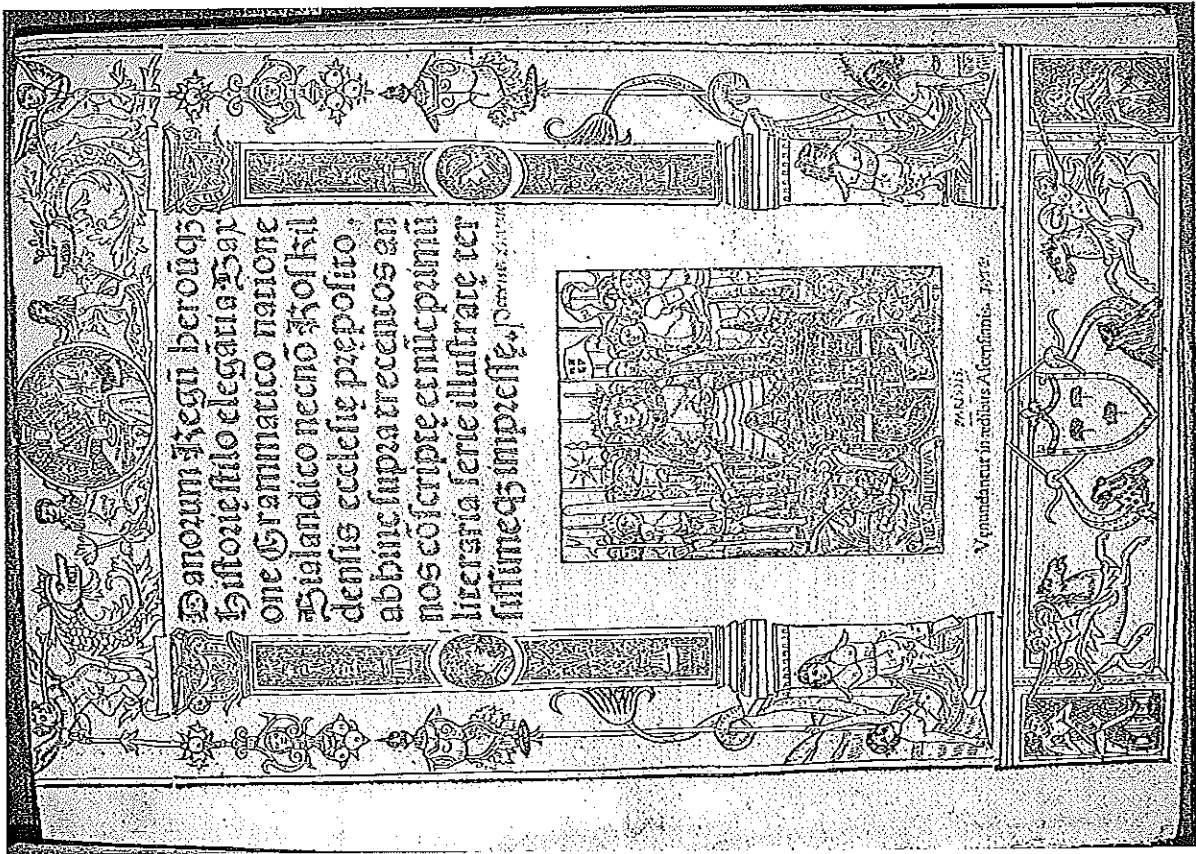 Danorum Regũ heroũqꝫ
Historię stilo elegãti a Sax
one Grammatico natione
Sialandico necnõ Roskil
densis ecclesię pręposito,
abhinc supra trecentos an
nos cõscriptę et nũc primũ
literaria serie illustratę ter
sissimeqꝫ impressę.
PARISIIS
Vęnundantur in ædibus Ascensianis.